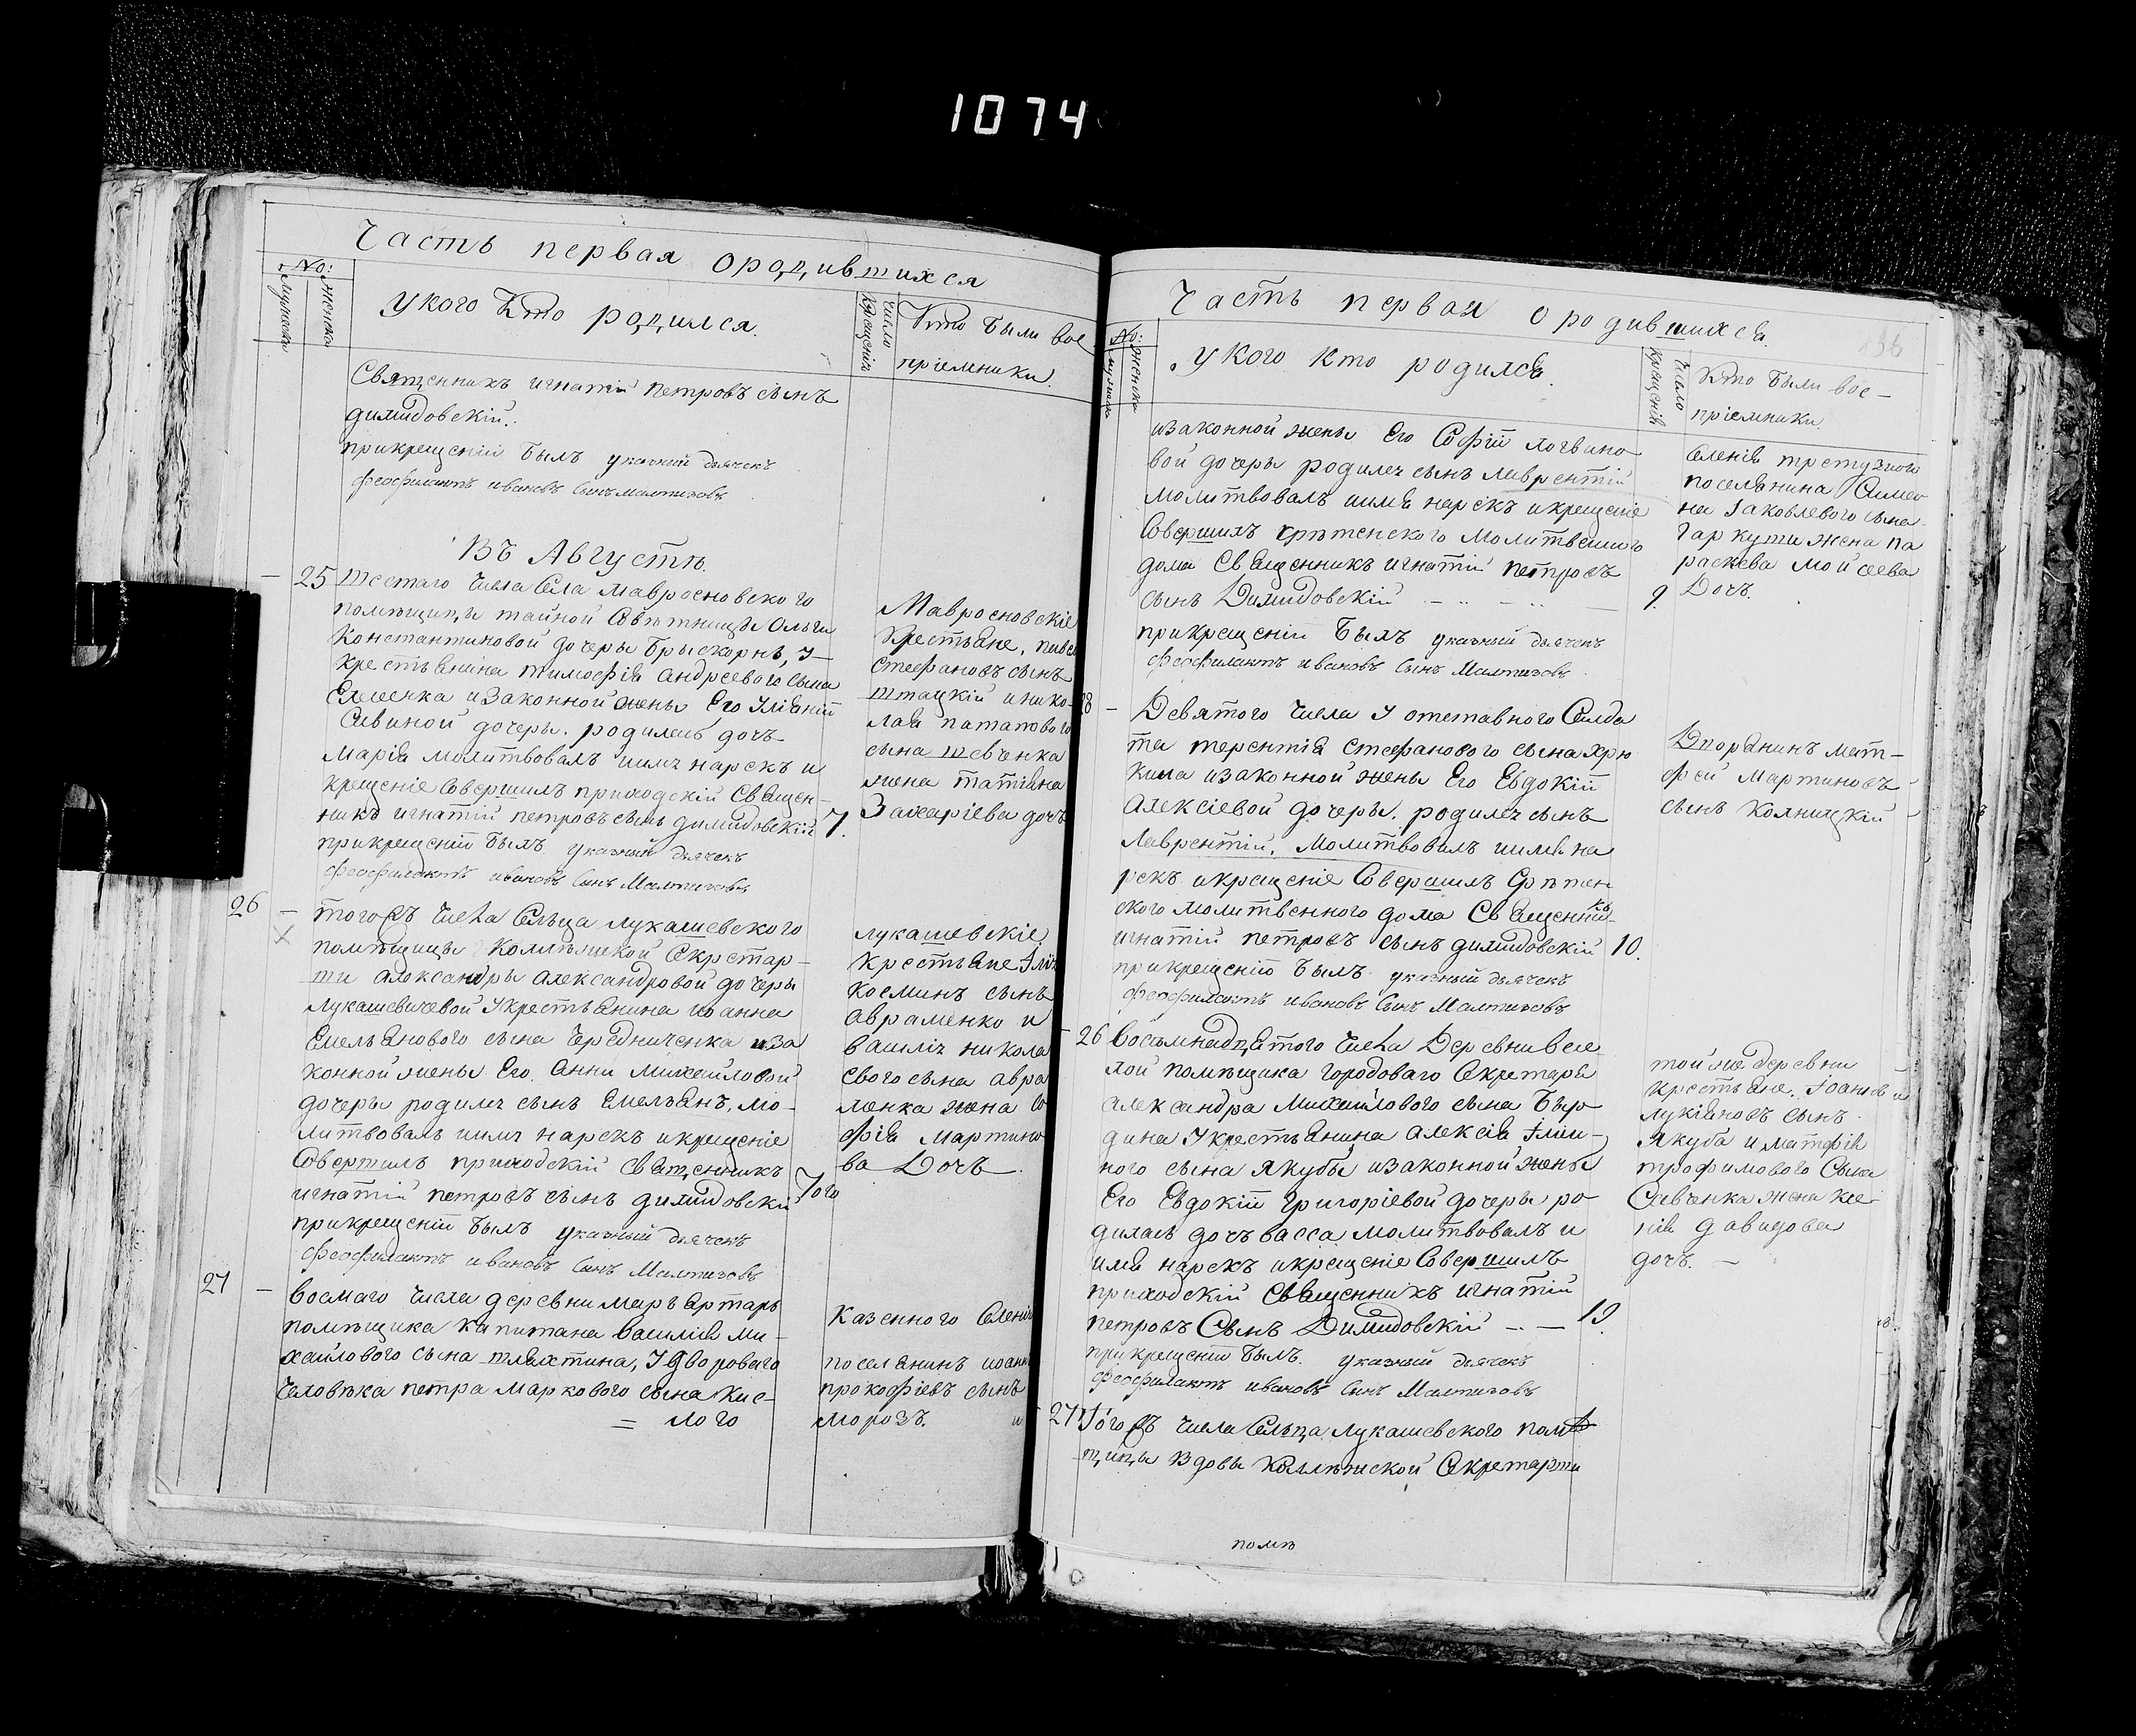 1074
Часть первая о родившихся
No:
мужеска
женска
У кого кто родился.
Число крещенія
Кто были вос
пріемники.
Священникъ игнатій петровъ сынъ
димидовскій.
при крещеніи былъ указный дьячекъ
феофилактъ ивановъ сынъ
Въ Августѣ.
25 шестаго числа села мавросновского
помѣщицы тайной совѣтницы ольги
Константиновой дочеры брыскорнъ, у
крестьянина тимофія андреевого сына
Семенка и законной жены его Уліаніи
Савиной дочеры. родилась дочь
марія молитвовалъ имя нарекъ и
крещеніе совершилъ приходскій священ-
никъ игнатій петровъ сынъ димидовскій 7.
при крещеніи былъ указный дьячекъ
феофилактъ ивановъ сынъ
Мавросновскіе
крестьяне,
стефановъ сынъ
штацкій и нико-
лая патапового
сына шевченка
жена татіяна
Захаріева дочь
26 того жъ числа сельца лукашевского
помѣщицы колѣжской секретар-
ши александры александровой дочеры
лукашевичевой у крестьянина иоанна
Емельянового сына Чередниченка и за
конной жены его анни михайловой
дочеры родился сынъ емельянъ, мо-
литвовалъ имя нарекъ и крещеніе
совершилъ приходскій священникъ
игнатій петровъ сынъ димидовскій 7ого
при крещеніи былъ указный дьячекъ
феофилактъ ивановъ сынъ
лукашевскіе
крестьяне
косминъ сынъ
авраменко и
василія никола
евого сына авра
менка жена со
фія мартино
ва дочь.
27 восмаго числа деревни марьяртаръ
помѣщика капитана василія ми-
хайлового сына шляхтина, у двороваго
человѣка петра маркового сына кис-
= лого
казенного селенія
поселянинъ иоаннъ
прокофіевъ сынъ
морозъ. и
Часть первая о родившихся.
136
No:
мужеска
женска
У кого кто родился.
Число крещенія
Кто были вос-
пріемники.
и законной жены его Софіи логвино
вой дочеры родился сынъ лаврентій
молитвовалъ имя нарекъ и крещеніе
совершилъ срѣтенского молитвенного
дома священникъ игнатій петровъ
сынъ Димидовскій 9.
при крещеніи былъ указный дьячекъ
феофилактъ ивановъ сынъ
селенія третузного
поселянина симео
на Іаковлевого сына
Гаркуши жена па
раскева мойсеева
Дочь.
28 Девятого числа у отставного салда
та терентія стефанового сына хрю
кина и законной жены его Евдокіи
алексіевой дочеры. родился сынъ
лаврентій. молитвовалъ имя на
рекъ и крещеніе совершилъ срѣтен
ского молитвенного дома священникъ
игнатій петровъ сынъ димидовскій 10.
при крещеніи былъ указный дьячекъ
феофилактъ ивановъ сынъ
Дворянинъ мат-
фей мартиновъ
сынъ
26 восьмнадцятого числа Деревни весе
лой помѣщика городоваго секретаря
александра михайлового сына Быр
дина у крестьянина алексія Іли-
ного сына якубы и законной жены
его Евдокіи григоріевой дочеры ро
дилась дочь васса молитвовалъ и
имя нарекъ и крещеніе совершилъ
приходскій священникъ игнатій
петровъ сынъ Димидовскій 19.
при крещеніи былъ. указный дьячекъ
феофилактъ ивановъ сынъ
той же деревни
крестьяне. Іоаннъ
лукіяновъ сынъ
якуба и матфія
трофимового сына
Савченка жена ксе
нія давидова
дочь.
27 того жъ числа сельца лукашевского помѣ
щицы вдовы колѣжской секретарши
помѣ